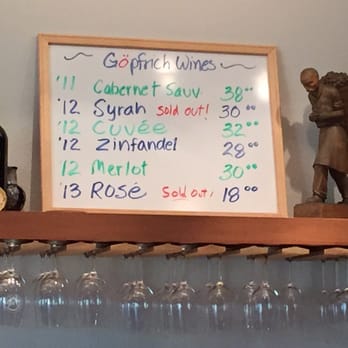 Göpfrich Wines
'11 Cabernet Sauv 38⁰⁰
'12 Syrah Sold out! 30⁰⁰
'12 Cuvée 32⁰⁰
'12 Zinfandel 28⁰⁰
'12 Merlot 30⁰⁰
'13 Rosé Sold out! 18⁰⁰